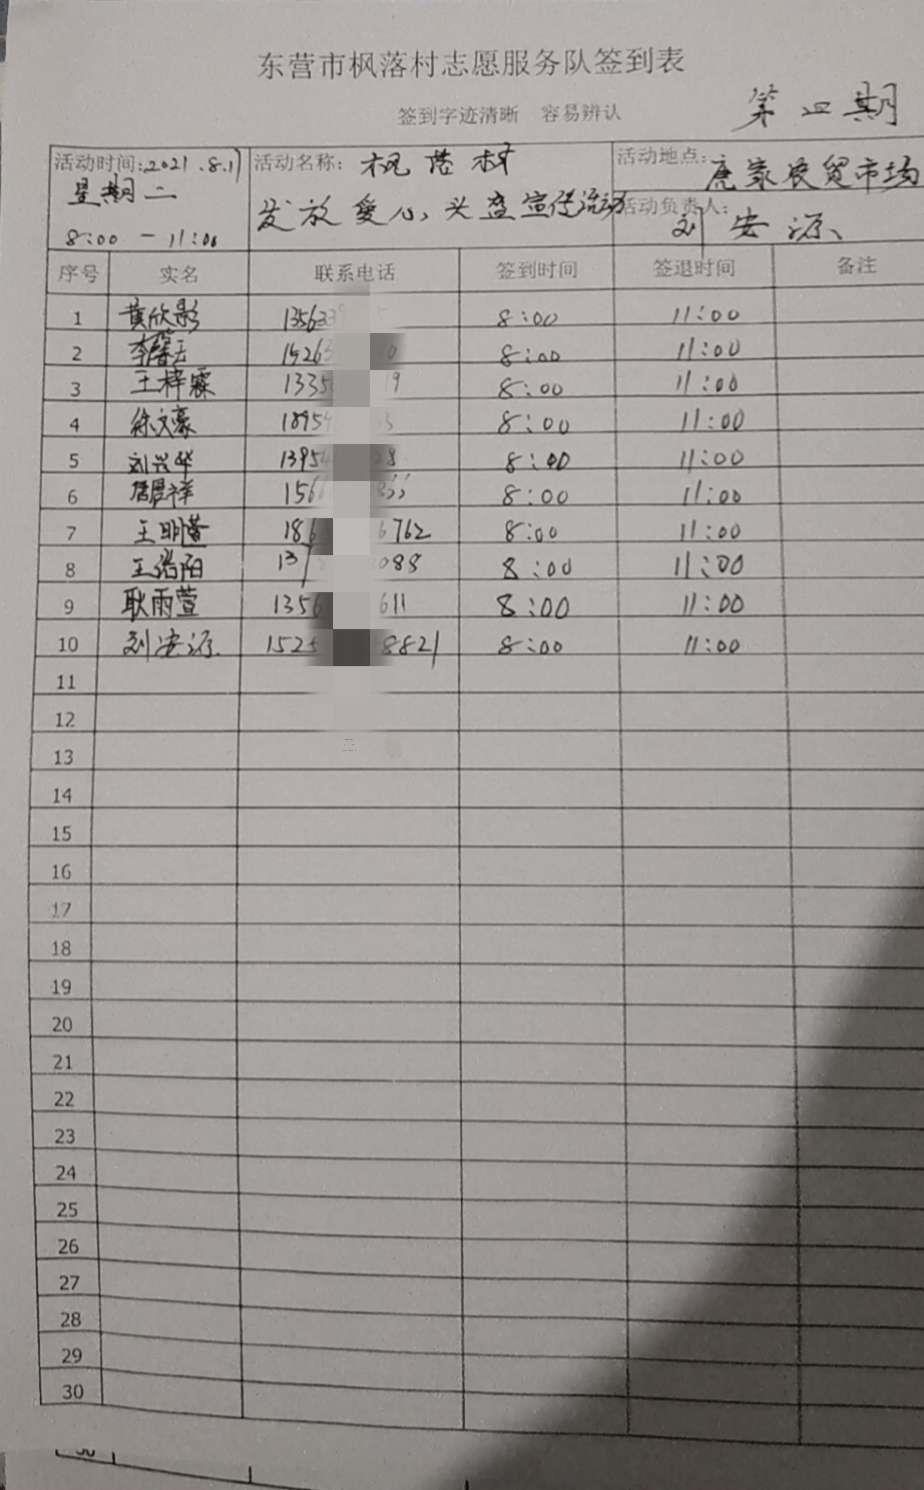 东营市枫落村志愿服务队签到表
签到字迹清晰 容易辨认
第四期
活动时间:2021.8.17 星期二 8:00-11:00
活动名称:枫落村 发放爱心、头盔宣传活动
活动地点:唐家农贸市场
活动负责人:刘安源
序号 实名 联系电话 签到时间 签退时间 备注
1 黄欣彤 13563 8:00 11:00
2 李馨玉 15263 0 8:00 11:00
3 王梓霖 1335 19 8:00 11:00
4 徐文豪 18954 8:00 11:00
5 刘兴华 13954 28 8:00 11:00
6 156 8:00 11:00
7 王明萱 186 6762 8:00 11:00
8 王浩阳 13 088 8:00 11:00
9 耿雨萱 1356 611 8:00 11:00
10 刘安源 1525 8821 8:00 11:00
11
12
13
14
15
16
17
18
19
20
21
22
23
24
25
26
27
28
29
30